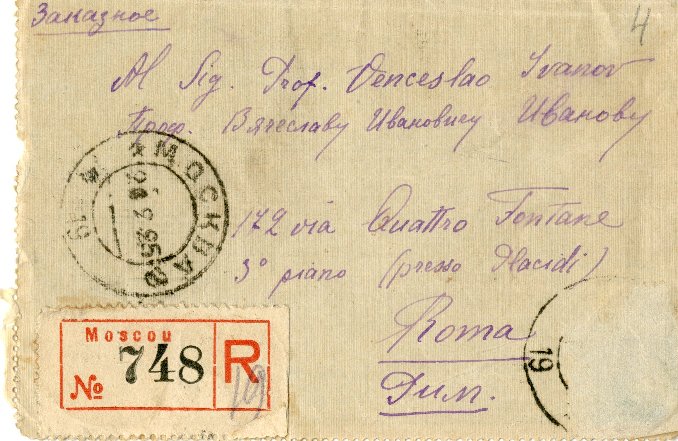 Заказное
4
Al Sig. Prof. Venceslao Ivanov
Проф. Вячеславу Ивановичу Иванову
МОСКВА
19
172 via Quattro Fontane
3° piano (presso Placidi)
Roma
Рим.
Moscou
№ 748 R
19